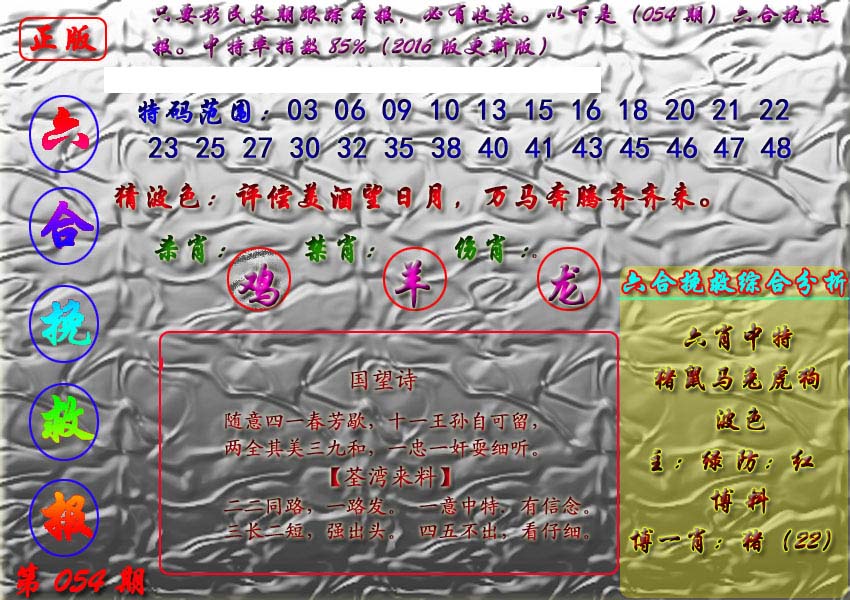 正版
只要彩民长期跟踪本报，必有收获。以下是（054期）六合挽救
报。中特率指数85%（2016版更新版）
六合挽救报
第054期
特码范围：03 06 09 10 13 15 16 18 20 21 22
23 25 27 30 32 35 38 40 41 43 45 46 47 48
猜波色：评偿美酒望日月，万马奔腾齐齐来。
杀肖：鸡 禁肖：羊 伤肖：龙
国望诗
随意四一春芳歇，十一王孙自可留，
两全其美三九和，一忠一奸耍细听。
【荃湾来料】
二二同路，一路发。 一意中特，有信念。
三长二短，强出头。 四五不出，看仔细。
六合挽救综合分析
六肖中特
猪鼠马兔虎狗
波色
主：绿防：红
博料
博一肖：猪（22）